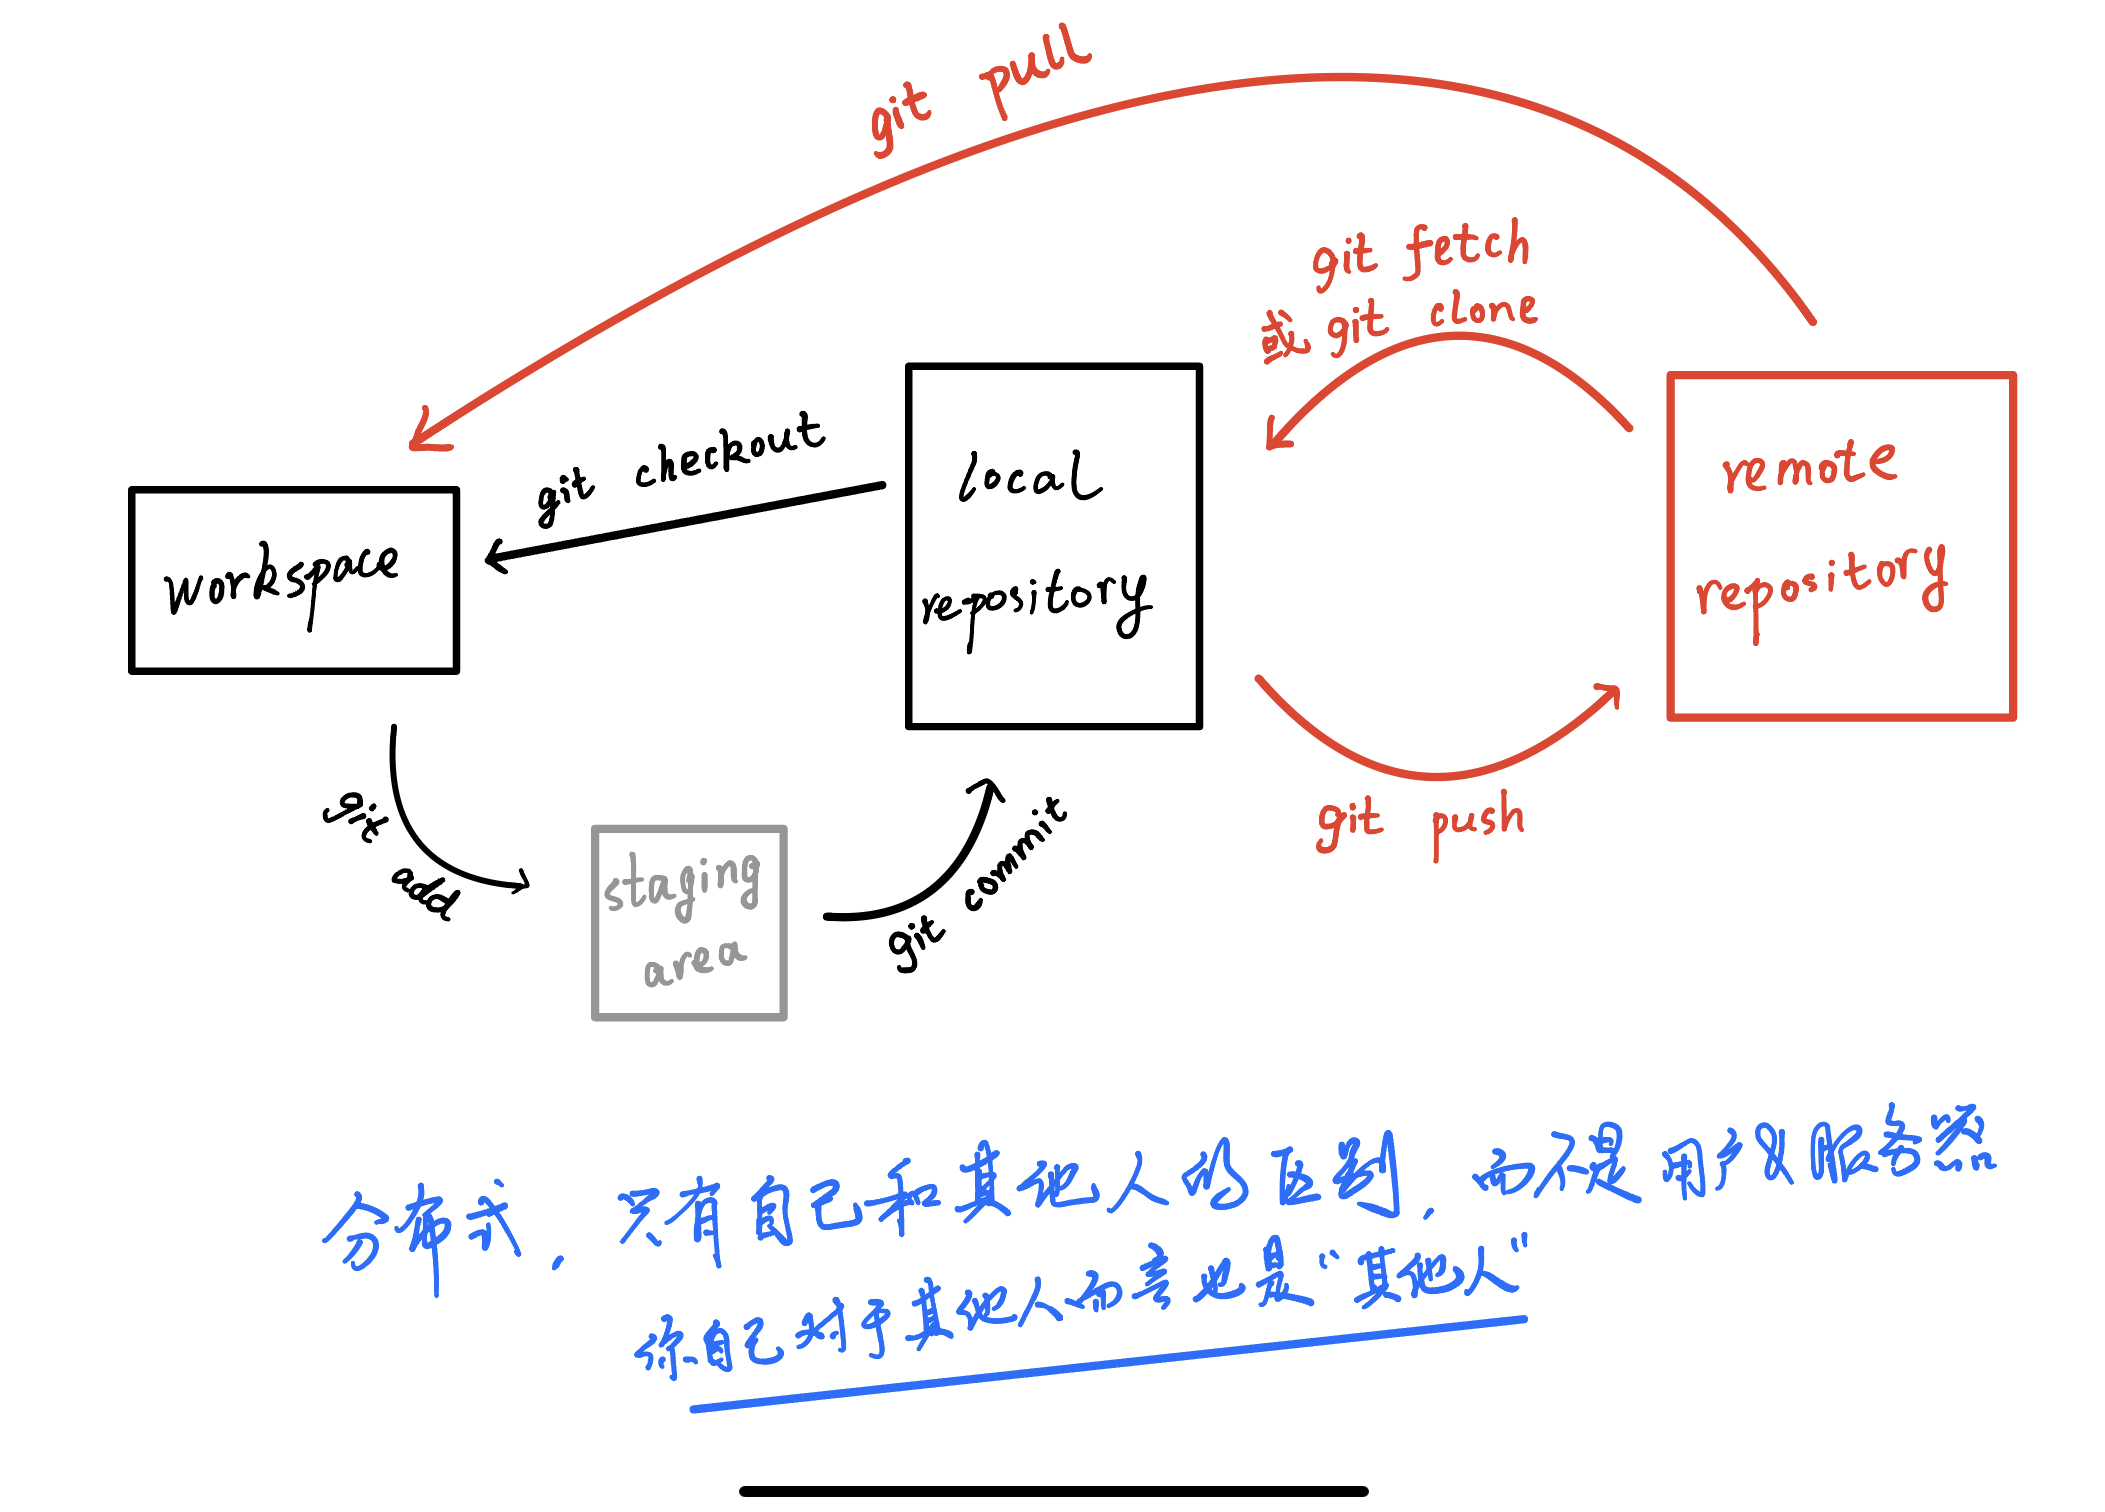 git pull
git fetch
或 git clone
git checkout
local
repository
remote
repository
workspace
git add
staging
area
git commit
git push
分布式，只有自己和其他人的区别，而不是用户&服务器
你自己对于其他人而言也是“其他人”